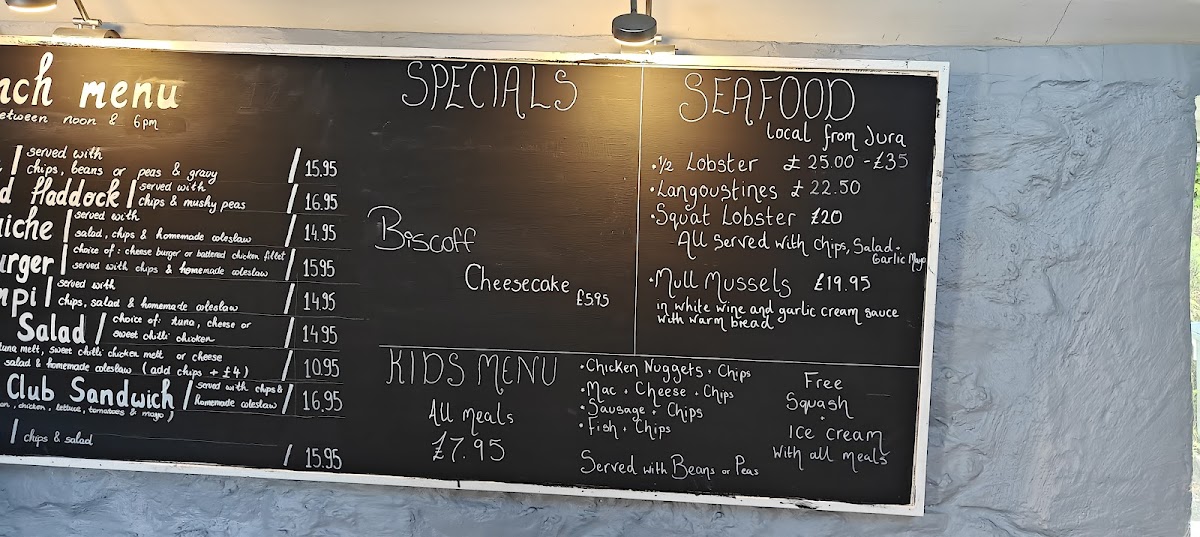 menu
between noon & 6pm
served with
chips, beans or peas & gravy
15.95
Haddock
served with
chips & mushy peas
16.95
served with
salad, chips & homemade coleslaw
14.95
choice of: cheese burger or battered chicken fillet
served with chips & homemade coleslaw
15.95
served with
chips, salad & homemade coleslaw
14.95
Salad
choice of: tuna, cheese or
sweet chilli chicken
14.95
tuna melt, sweet chilli chicken melt or cheese
salad & homemade coleslaw (add chips + £4)
10.95
Club Sandwich
served with chips &
homemade coleslaw
16.95
chicken, lettuce, tomatoes & mayo)
chips & salad
15.95
SPECIALS
Biscoff
Cheesecake
£5.95
SEAFOOD
local from Jura
• 1/2 Lobster £25.00 - £35
• Langoustines £22.50
• Squat Lobster £20
All served with chips, Salad +
Garlic Mayo
• Mull Mussels £19.95
in white wine and garlic cream sauce
with warm bread
KIDS MENU
All meals
£7.95
• Chicken Nuggets + Chips
• Mac + Cheese + Chips
• Sausage + Chips
• Fish + Chips
Served with Beans or Peas
Free
Squash
+
Ice cream
with all meals